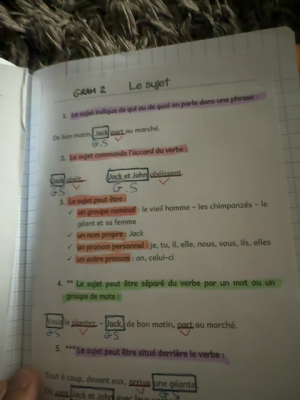 GRAM 2 Le sujet
1. Le sujet indique de qui ou de quoi on parle dans une phrase :
De bon matin, Jack part au marché.
G.S
2. Le sujet commande l'accord du verbe :
Jack obéit. Jack et John obéissent.
GS G.S
3. Le sujet peut être :
✓ un groupe nominal : le vieil homme – les chimpanzés – le
géant et sa femme
✓ un nom propre : Jack
✓ un pronom personnel : je, tu, il, elle, nous, vous, ils, elles
✓ un autre pronom : on, celui-ci
4. ** Le sujet peut être séparé du verbe par un mot ou un
groupe de mots :
le plantez. – Jack, de bon matin, part au marché.
GS GS
5. *** Le sujet peut être situé derrière le verbe :
Tout à coup, devant eux, arrive une géante.
Jack et John avec